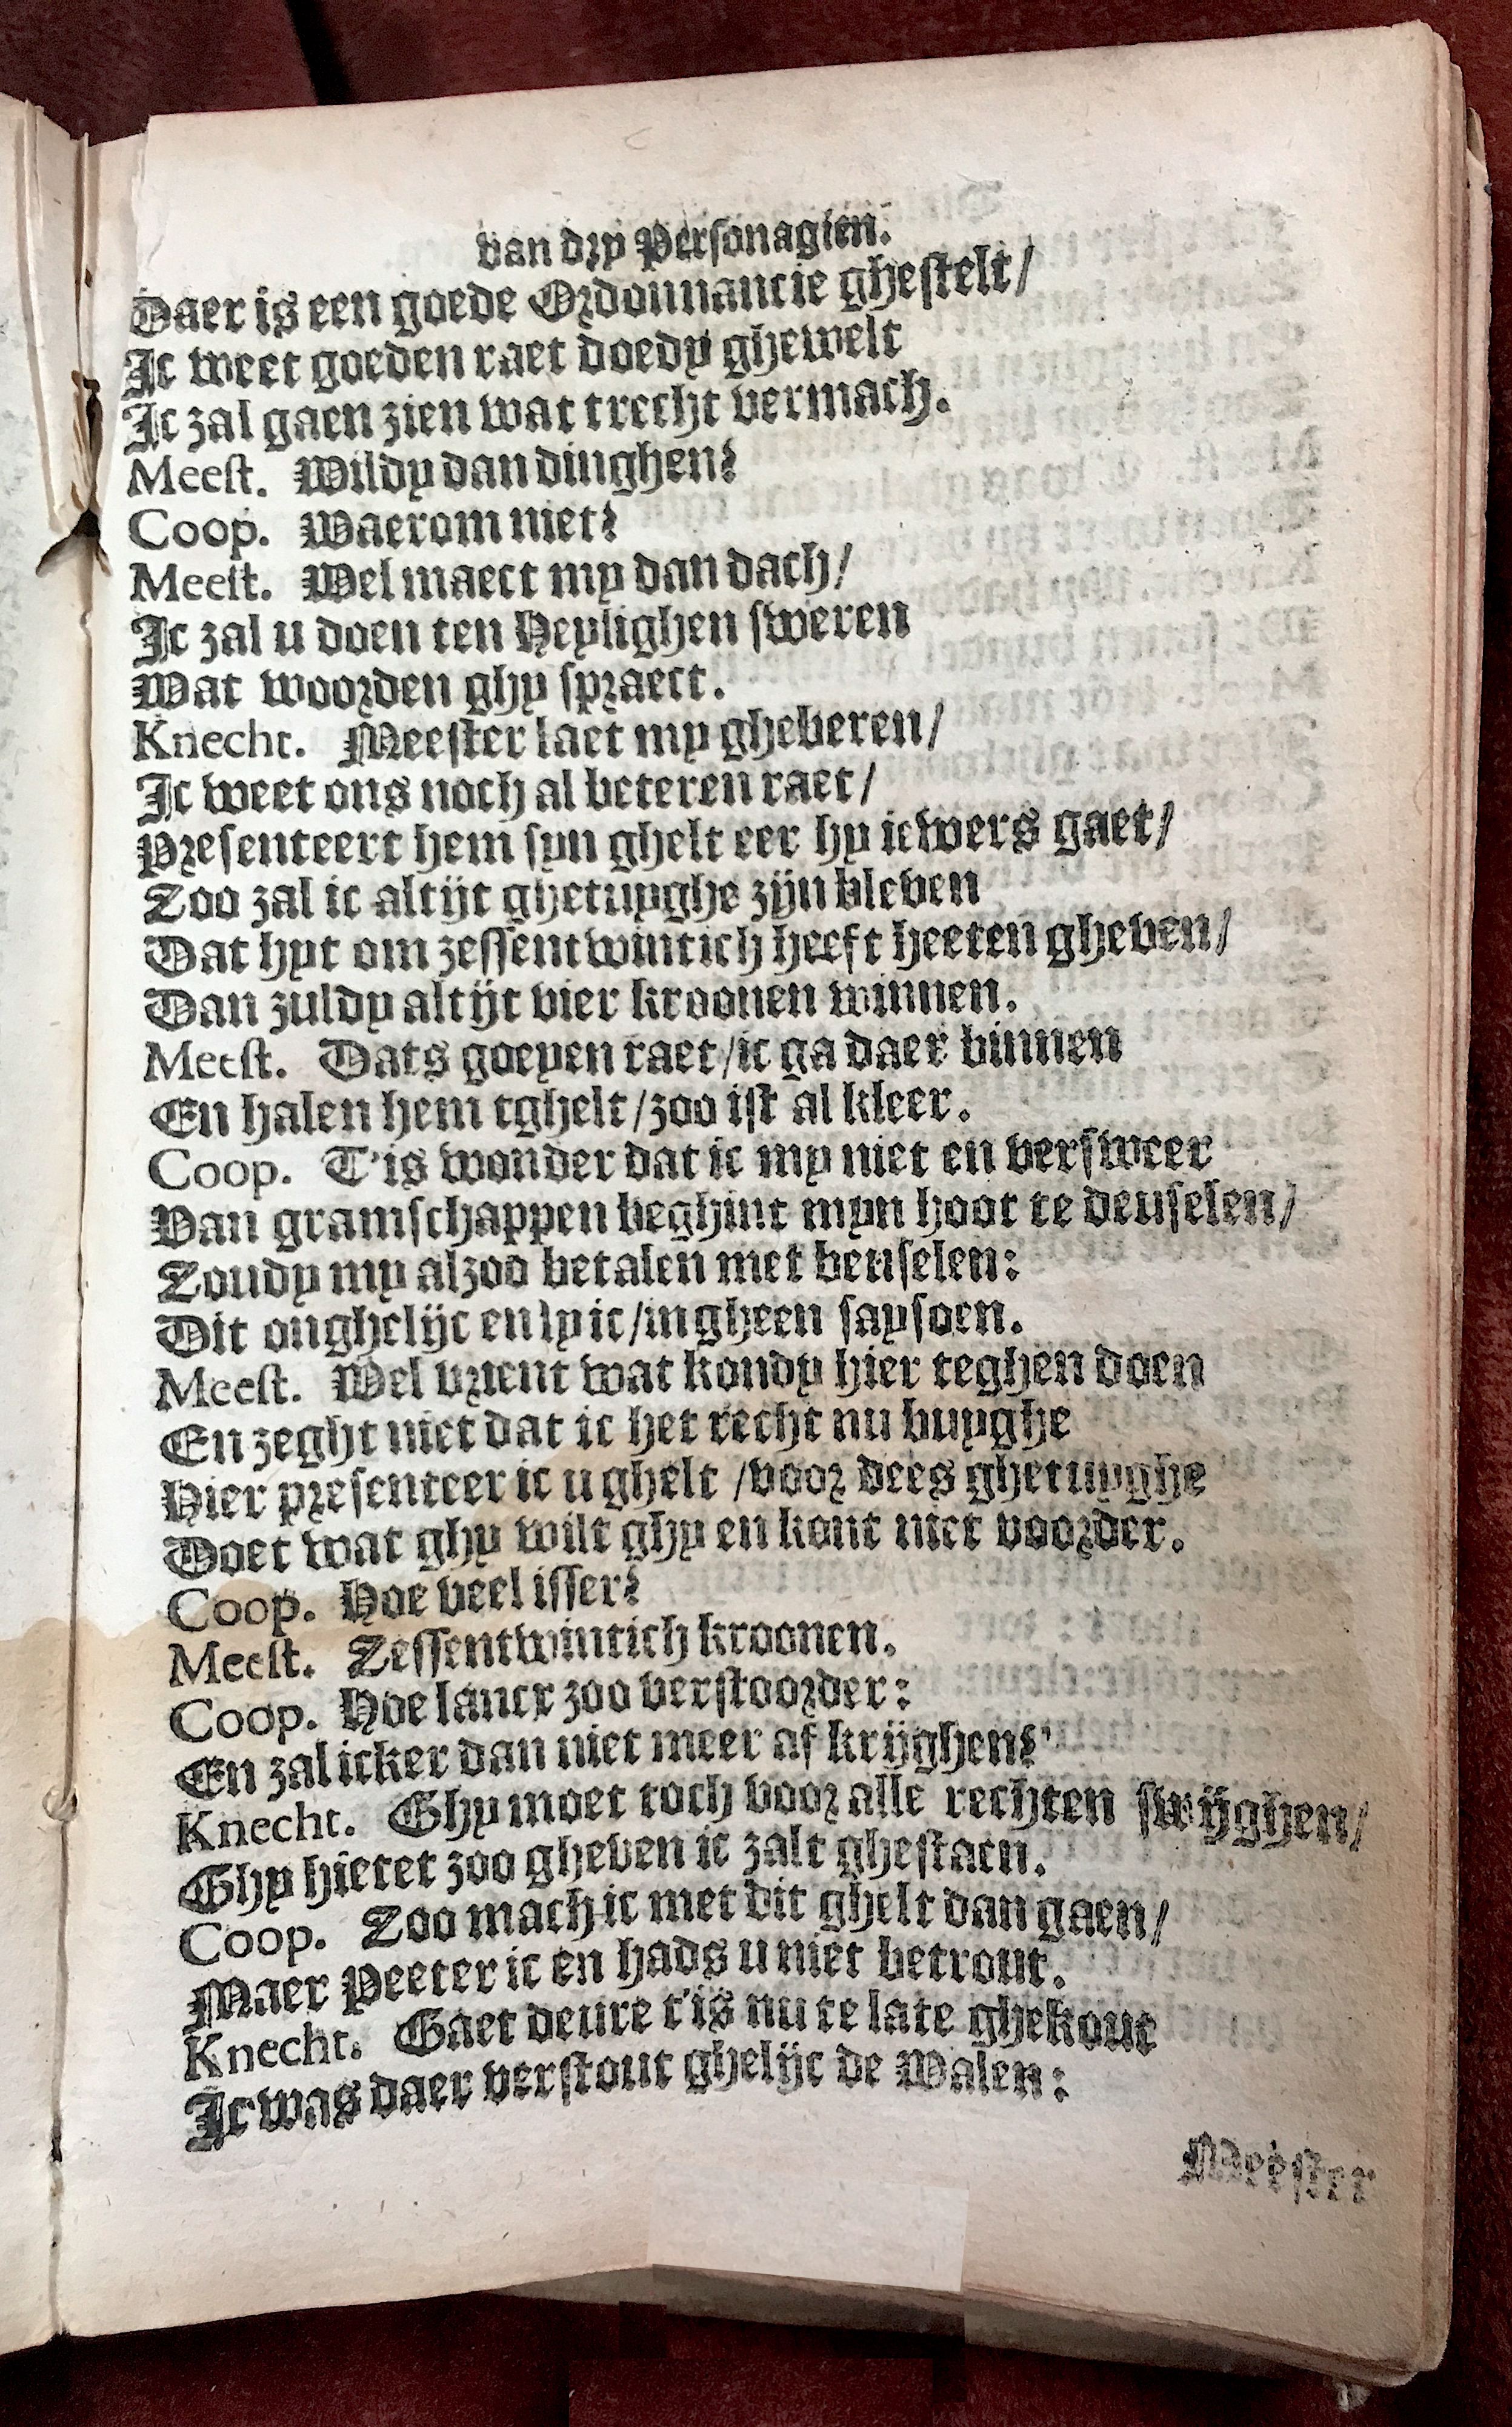 van dry Personagien.
Daer is een goede Ordonnancie ghestelt/
Ic weet goeden raet doedy ghewelt
Ic zal gaen zien wat trecht vermach.
Meest. Wildy dan dinghen?
Coop. Waerom niet?
Meest. Wel maect my dan dach/
Ic zal u doen ten Heylighen sweren
Wat woorden ghy spraect.
Knecht. Meester laet my gheberen/
Ic weet ons noch al beteren raet/
Presenteert hem syn ghelt eer hy iewers gaet/
Zoo zal ic altijt ghetuyghe zijn bleven
Dat hyt om zessentwintich heeft heeten gheven/
Dan zuldy altijt vier kroonen winnen.
Meest. Dats goeyen raet/ic ga daer binnen
En halen hem tghelt/zoo ist al kleer.
Coop. T'is wonder dat ic my niet en versweer
Van gramschappen beghint myn hoot te deuselen/
Zoudy my alzoo betalen met beuselen:
Dit onghelijc en ly ic/in gheen saysoen.
Meest. Wel vrient wat kondy hier teghen doen
En zeght niet dat ic het recht nu buyghe
Hier presenteer ic u ghelt /voor dees ghetuyghe
Doet wat ghy wilt ghy en kont niet voorder.
Coop. Hoe veel isser?
Meest. Zessentwintich kroonen.
Coop. Hoe lancx zoo verstoorder:
En zal icker dan niet meer af krijghen?
Knecht. Ghy moet toch voor alle rechten swijghen/
Ghy hietet zoo gheven ic zalt ghestaen.
Coop. Zoo mach ic met dit ghelt dan gaen/
Maer Peeter ic en hads u niet betrout.
Knecht. Gaet deure t'is nu te late ghekout
Ic was daer verstout ghelijc de Walen:
Meester